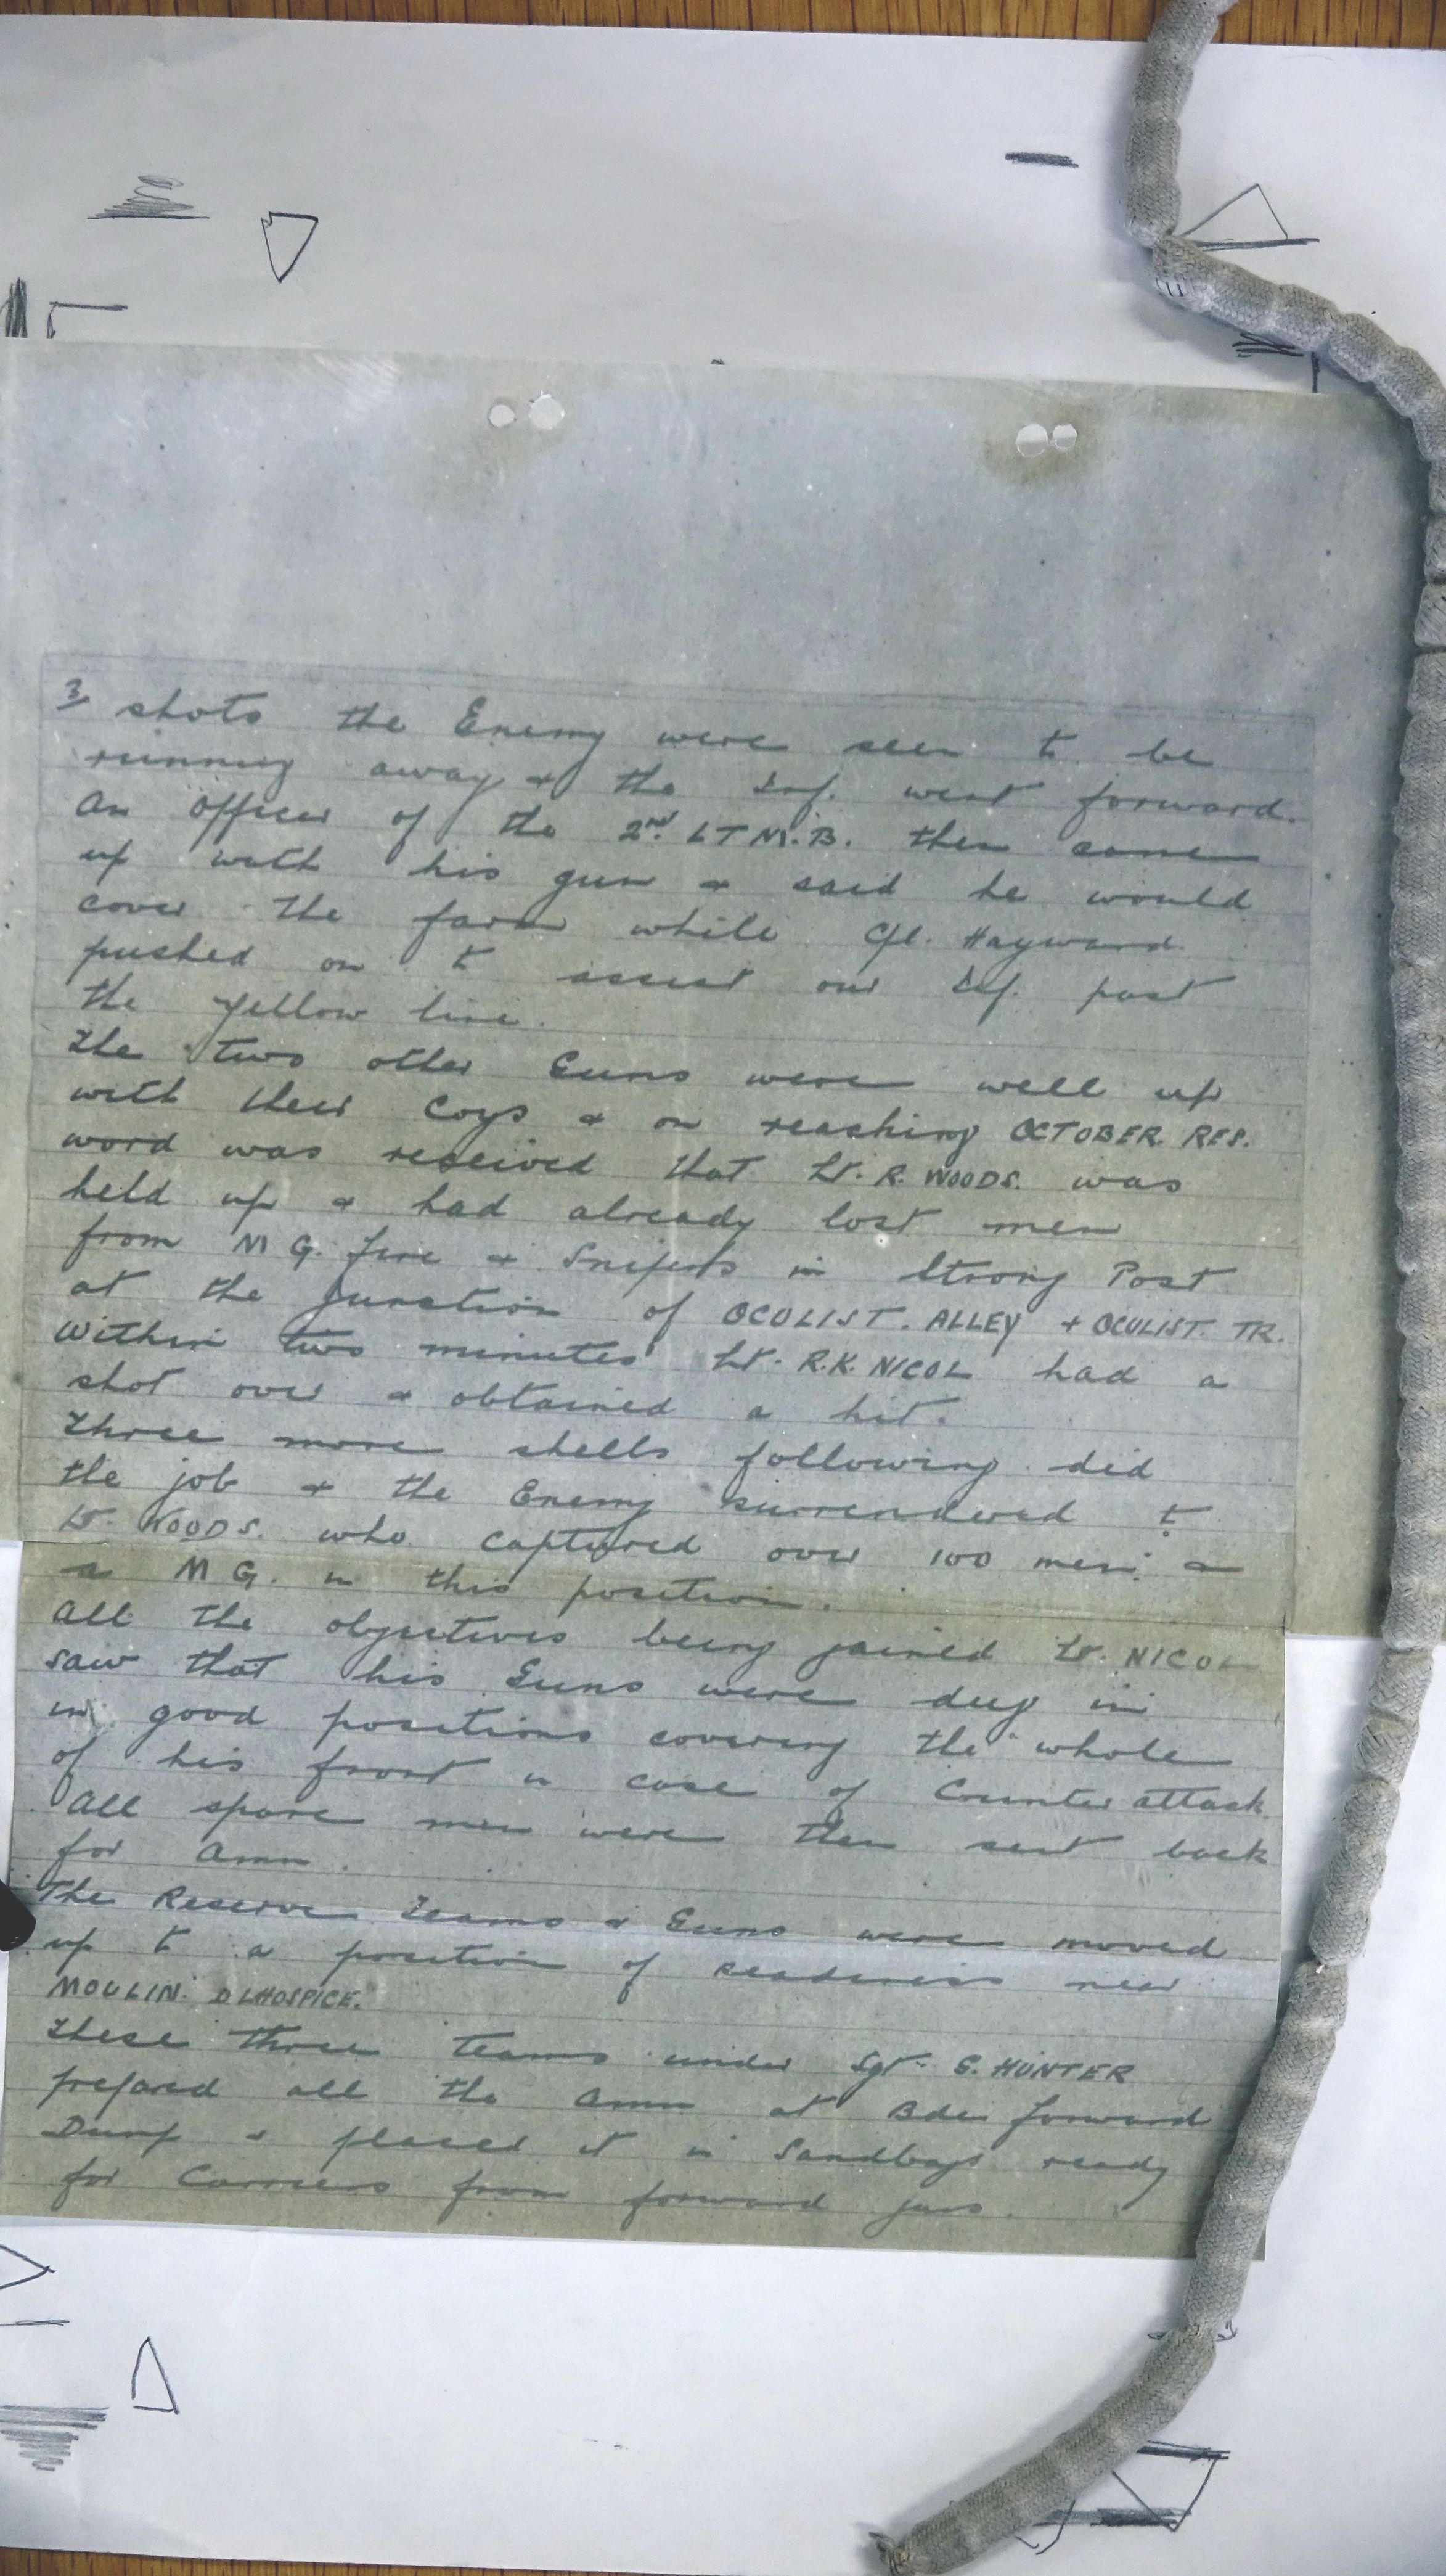 3/ shots the Enemy were seen to be
running away & the Inf. went forward.
An Officer of the 2nd. LTM.B. then came
up with his gun & said he would
cover the farm while Cpl. Hayward
pushed on to assist our Inf. past
the yellow line.
The two other Guns were well up
with their Coys & on reaching OCTOBER. RES.
word was received that Lt. R. WOODS. was
held up & had already lost men
from M G. fire & Snipers in Strong Post
at the junction of OCULIST. ALLEY + OCULIST. TR.
Within two minutes Lt. R.K. NICOL had a
shot over & obtained a hit.
Three more shells following did
the job & the Enemy surrendered to
Lt. WOODS. who captured over 100 men. &
a M G. in this position.
All the objectives being gained Lt. NICOL
saw that his Guns were dug in
in good positions covering the whole
of his front in case of Counter attack.
All spare men were then sent back
for Amn.
The Reserve Teams & Guns were moved
up to a position of readiness near
MOULIN. D LHOSPICE.
These three teams under Sgt. S. HUNTER
prepared all the Amn at Bde forward
Dump & placed it in Sandbags ready
for Carriers from forward guns.